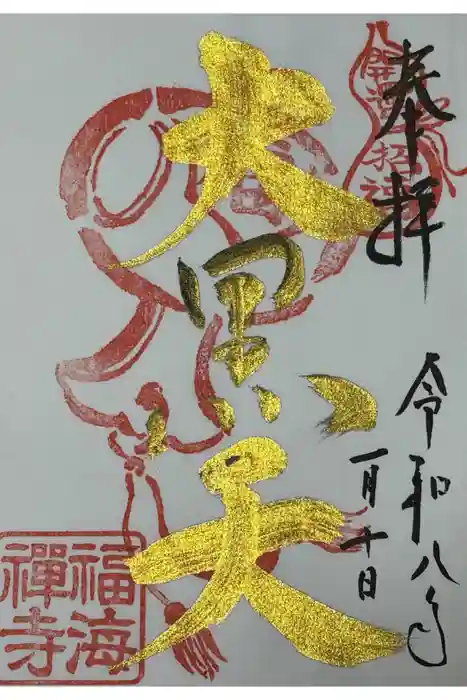 開運招福
奉拝
令和八年
一月十日
大黒天
福海
禅寺